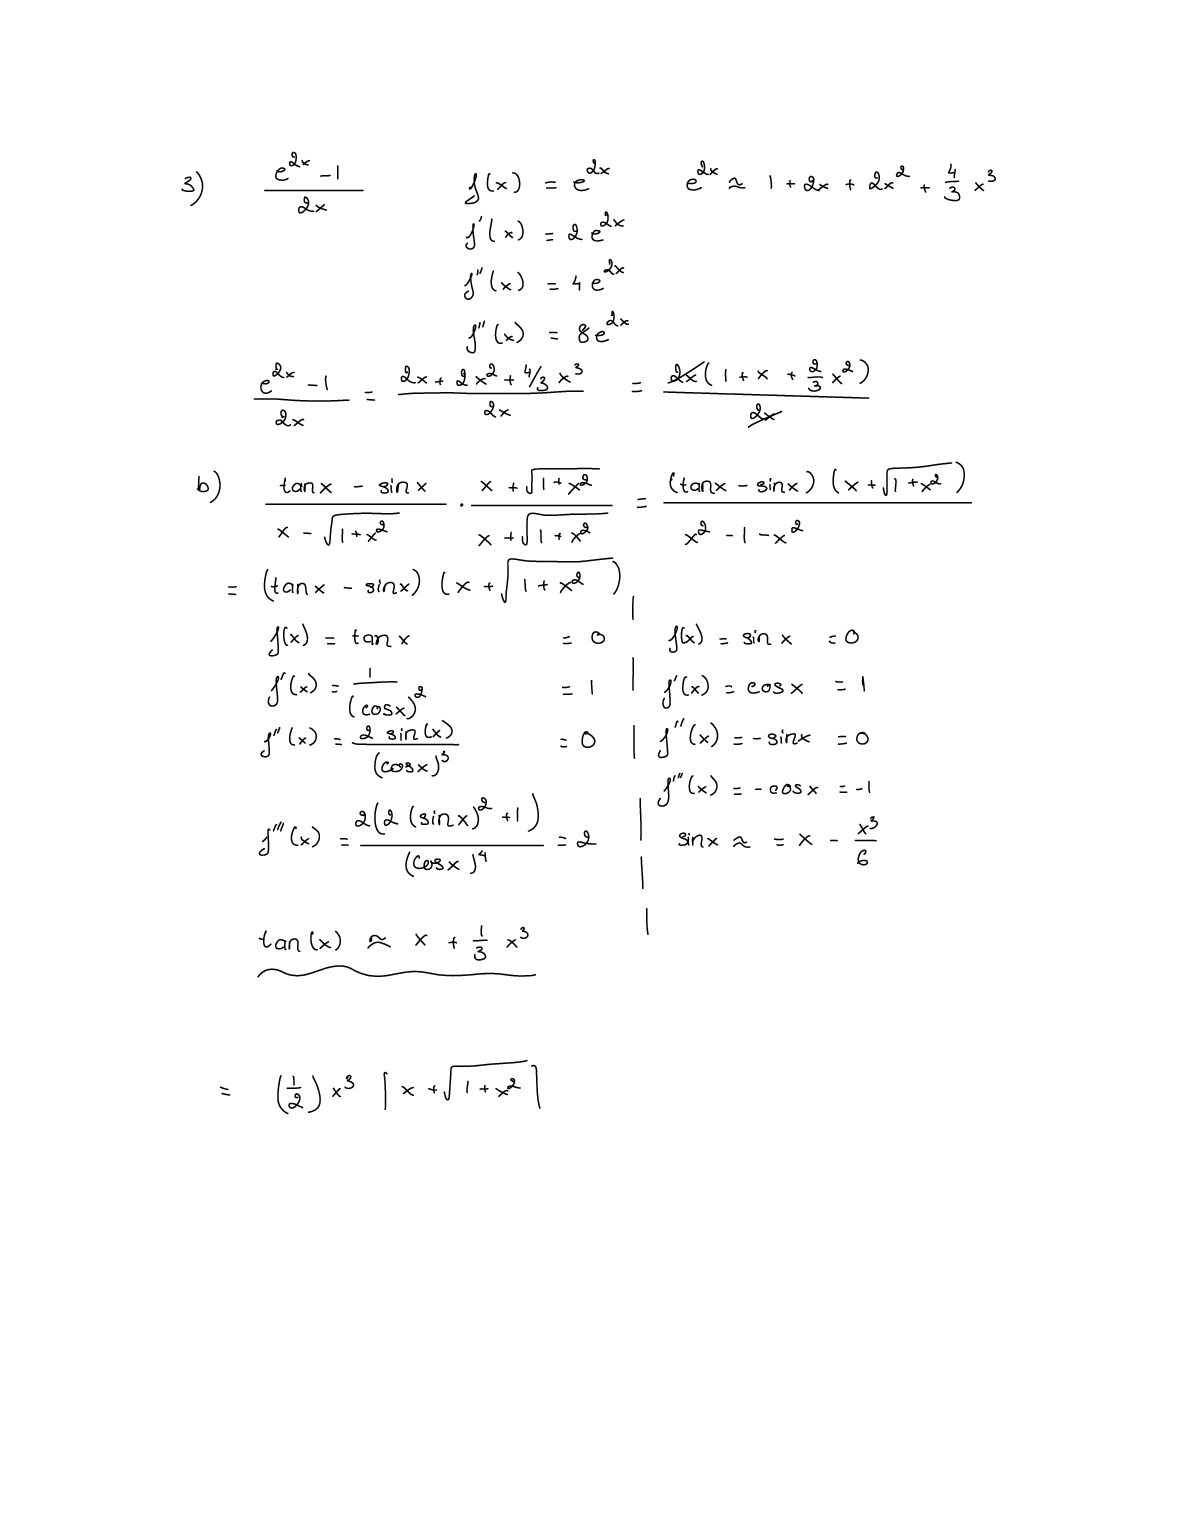 3) (e^{2x} - 1)/(2x)    f(x) = e^{2x}    e^{2x} ≈ 1 + 2x + 2x^2 + 4/3 x^3
f'(x) = 2e^{2x}
f''(x) = 4e^{2x}
f''(x) = 8e^{2x}
(e^{2x} - 1)/(2x) = (2x + 2x^2 + 4/3 x^3)/(2x) = (2x(1 + x + 2/3 x^2))/(2x)
b) (tanx - sinx)/(x - √(1+x^2)) · (x + √(1+x^2))/(x + √(1+x^2)) = ((tanx - sinx)(x + √(1+x^2)))/(x^2 - 1 - x^2)
= (tanx - sinx)(x + √(1+x^2))
f(x) = tanx = 0 | f(x) = sinx = 0
f'(x) = 1/(cosx)^2 = 1 | f'(x) = cosx = 1
f''(x) = 2 sin(x)/(cosx)^3 = 0 | f''(x) = -sinx = 0
f'''(x) = -cosx = -1
f'''(x) = 2(2(sinx)^2 + 1)/(cosx)^4 = 2 | sinx ≈ = x - x^3/6
tan(x) ≈ x + 1/3 x^3
= (1/2) x^3 [x + √(1+x^2)]